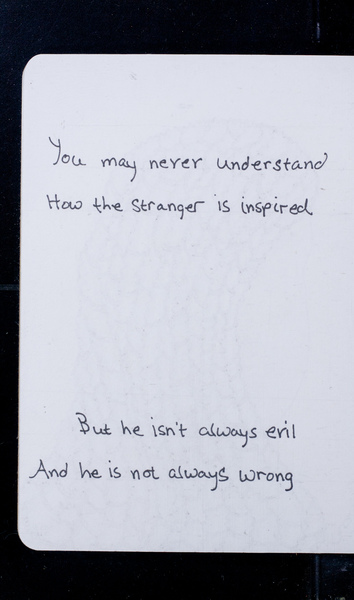 You may never understand
How the Stranger is inspired
But he isn't always evil
And he is not always wrong